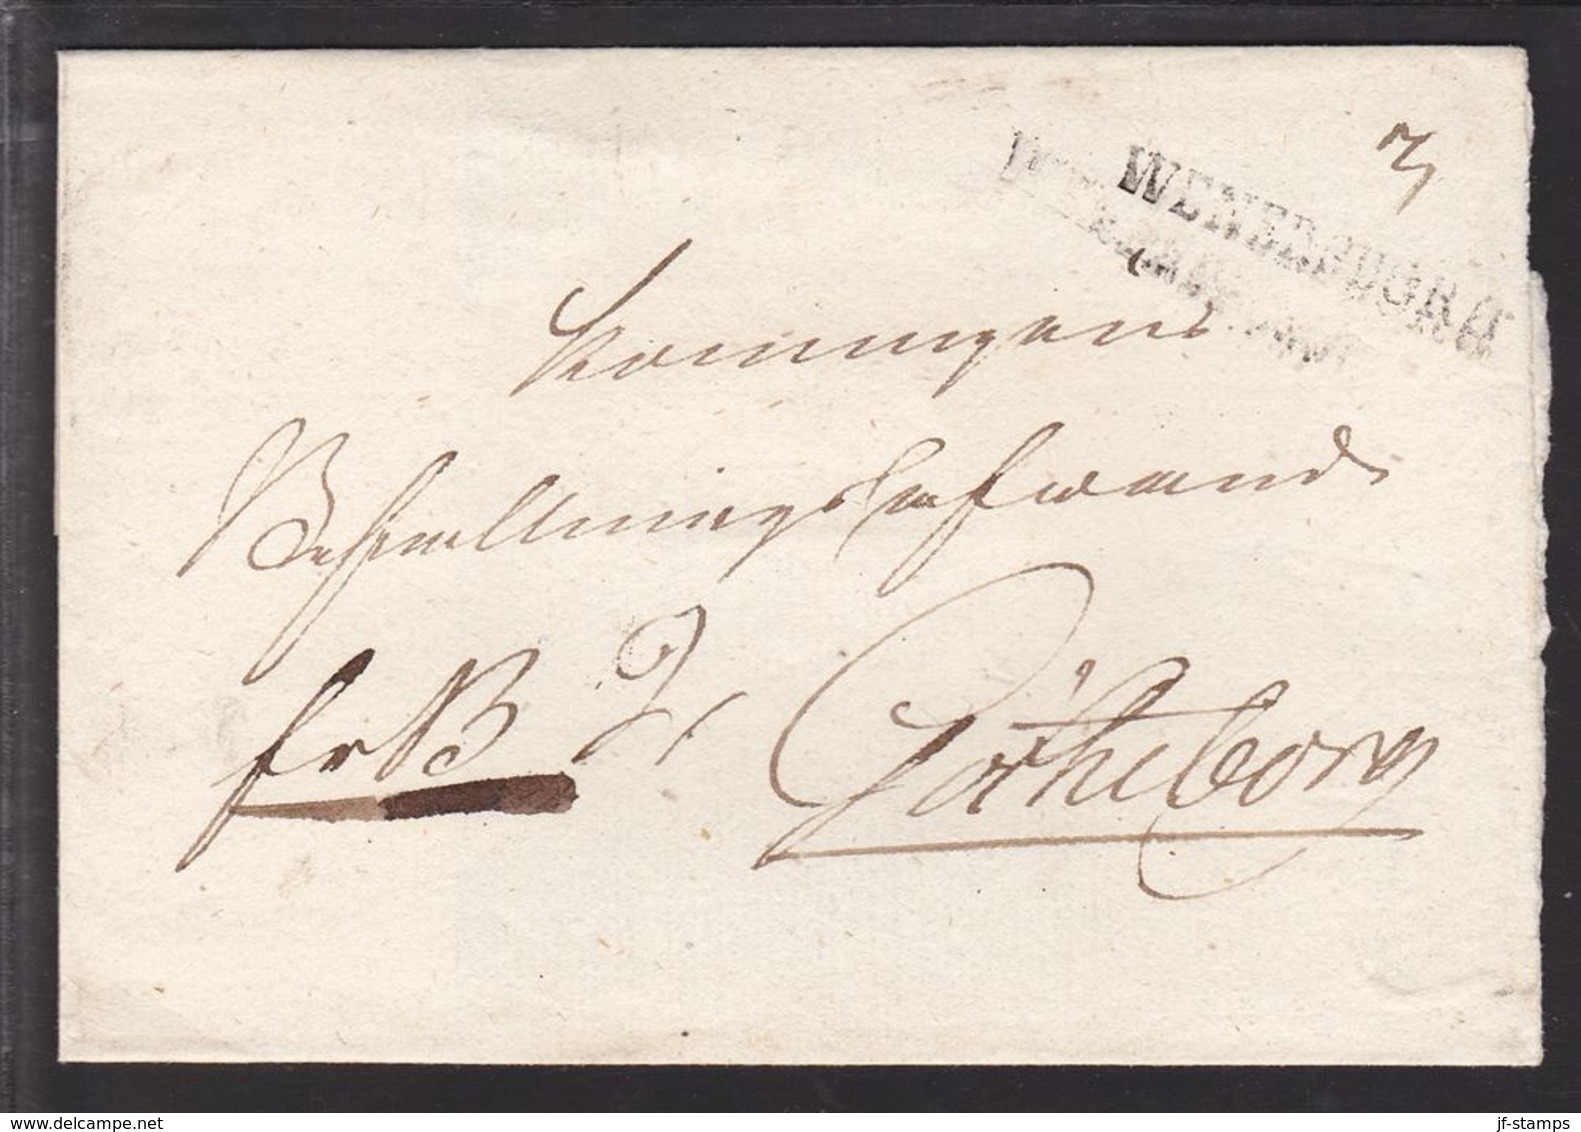 WENERSBORG
Konungens
Befallningshafwande
Götheborg
www.delcampe.net
jf-stamps